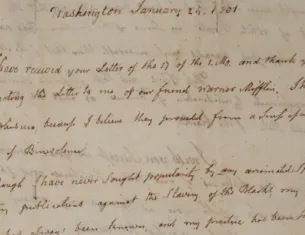 Washington January 24, 1801
have received your Letter of the 17 of the 1. Mo. and thank y
the Letter to me, of our friend Warner Mifflin. I h
because I believe they proceed from a Sense of
of Benevolence
ough I have never sought popularity by any animated Sp
publications against the Slavery of the Blacks my
always been known and my practice has been so